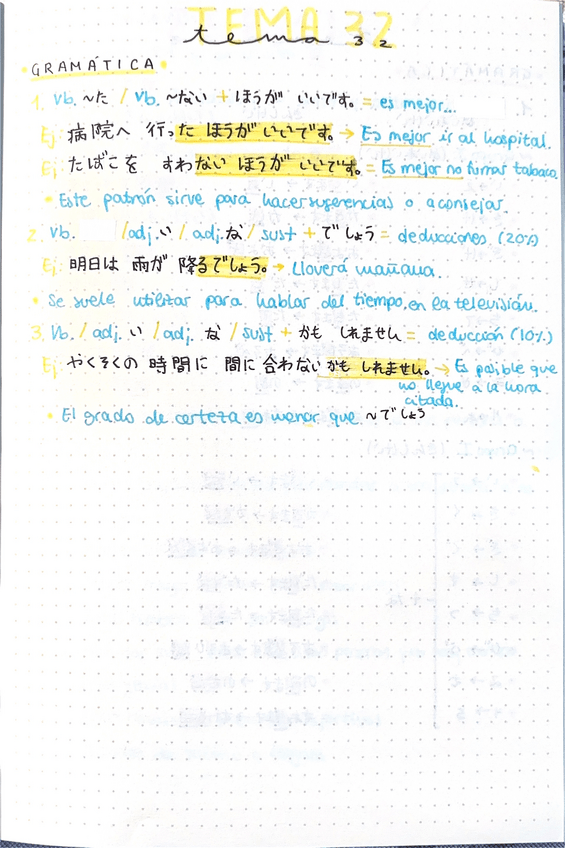 TEMA 32
tema 32
GRAMATICA
1. Vb. ~た / Vb. ~ない + ほうが いいです。 = es mejor...
Ej: 病院へ 行った ほうが いいです。 → Es mejor ir al hospital.
Ej: たばこを すわない ほうが いいです。 = Es mejor no fumar tabaco.
• Este patrón sirve para hacer sugerencias o aconsejar.
2. Vb. /adj. い / adj. な / sust + でしょう = deducciones (20%)
Ej: 明日は 雨が 降るでしょう。 → Lloverá mañana.
• Se suele utilizar para hablar del tiempo, en la televisión.
3. Vb. / adj. い /adj. な / sust + かも しれません = deducción (10%)
Ej: やくそくの 時間に 間に合わない かも しれません。 → Es posible que
no llegue a la hora
citada.
• El grado de certeza es menor que ~でしょう